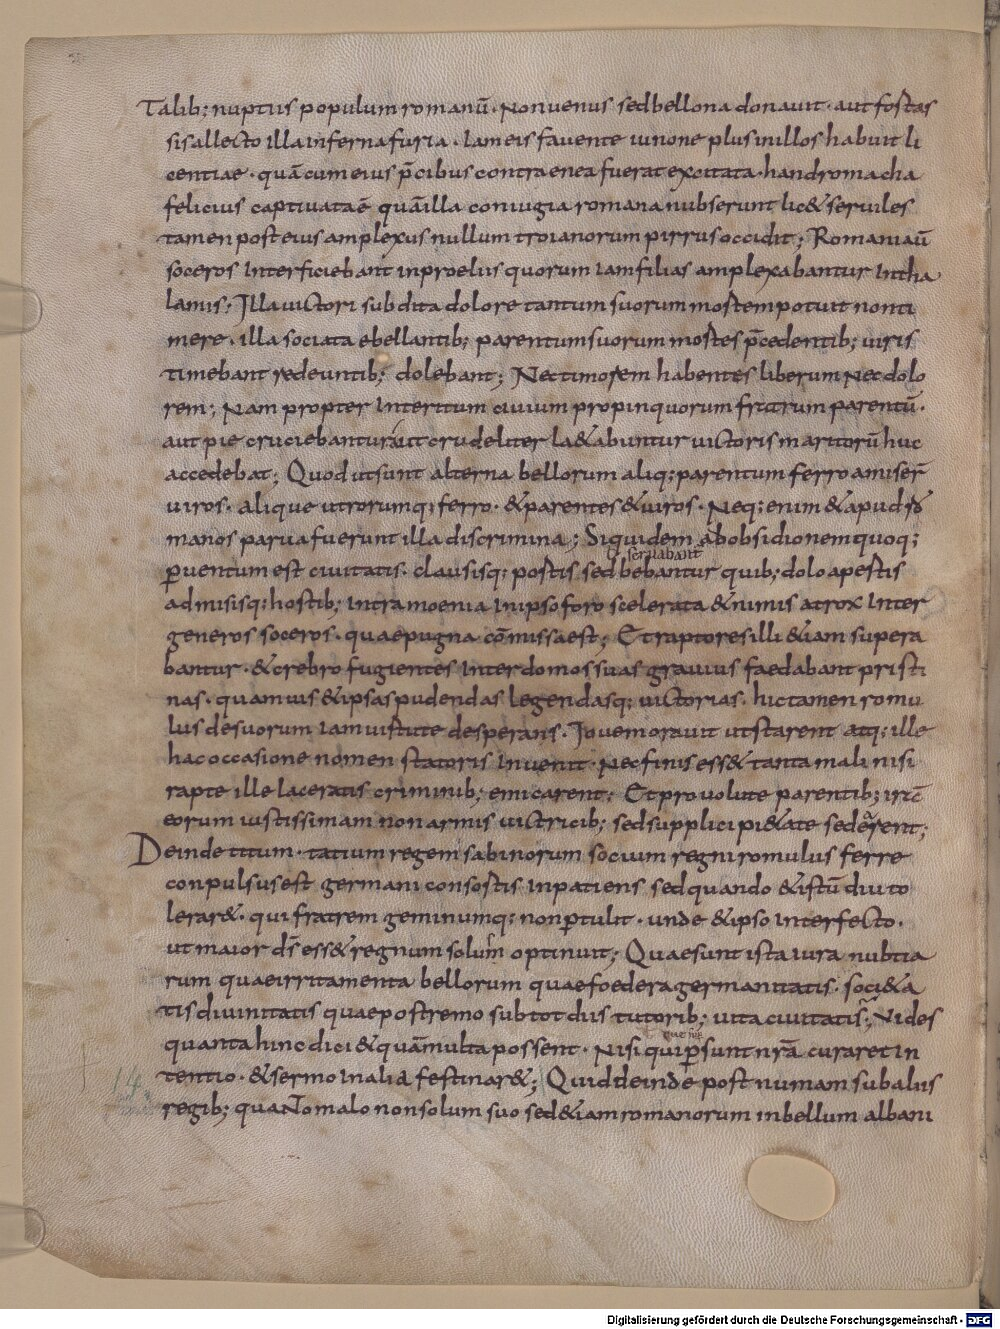 Talib; nuptiis populum romanū. Non uenus sed bellona donauit. aut fostas
sis allecto illa inferna furia. Iam eis fauente iunone plus in illos habuit li
centiae. quā cum eius p̄cibus contra enea fuerat excitata. handromacha
felicius captiuata ē quā illa coniugia romana nubserunt lic& seruiles
tamen post eius amplexus nullum troianorum pirrus occidit; Romani aū
soceros interficiebant in proelus quorum iam filias amplexabantur intha
lamis; Illa uictori subdita dolore tantum suorum mostem potuit non ti
mere. illa sociata ebellantib; parentum suorum mostes p̄cedentib; uiris
timebant redeuntib; dolebant; Nec timorem habentes liberum nec dolo
rem; Nam propter interitum ciuium propinquorum fratrum parentū.
aut pie cruciebantur aut crudeliter la&abuntur uictoris maritorū huc
accedebat; Quod ut sunt alterna bellorum aliq; parentum ferro amiser̄
uiros. alique utrorumq; ferro. & parentes & uiros. Neq; enim & apud ro
manos parua fuerunt illa discrimina; Siquidem ab obsidionem quoq;
seruabant
puentum est ciuitatis. clausisq; postis sed bebantur quib; dolo apestis
admisisq; hostib; intra moenia in ipso foro scelerata & nimis atrox inter
generos soceros. quae pugna cōmissa est; Et raptores illi &iam supera
bantur. & crebro fugientes inter domos suas grauius faedabant pristi
nas. quamuis & ipsas pudendas legendasq; uictorias. hic tamen romu
lus desuorum iam uistute desperans. Iouem orauit ut starent atq; ille
hac occasione nomen statoris inuenit. Nec finis ess& tanta mali nisi
rapte ille laceratis criminib; emicarent; Et prouolute parentib;
eorum iustissimam non armis uictricib; sed supplici pi&ate sederent;
Deinde titum. tatium regem sabinorum socium regni romulus ferre
conpulsus est germani consostis inpatiens sed quando & istū diu to
lerar&. qui fratrem geminumq; non ptulit. unde & ipso interfecto.
ut maior d̄s ess& regnum solum optinuit; Quae sunt ista iura nubtia
rum quae irritamenta bellorum quae foedera germanitatis. soci&a
tis diuinitatis quae postremo sub tot diis tutorib; uita ciuitatis; Vides
quanta hinc dici & quā multa possent. Nisi qui psunt nr̄a curaret in
tentio. & sermo in alia festinar&; Quid deinde post numam sub aliis
regib; quanto malo non solum suo sed &iam romanorum in bellum albani
14
Digitalisierung gefördert durch die Deutsche Forschungsgemeinschaft - DFG